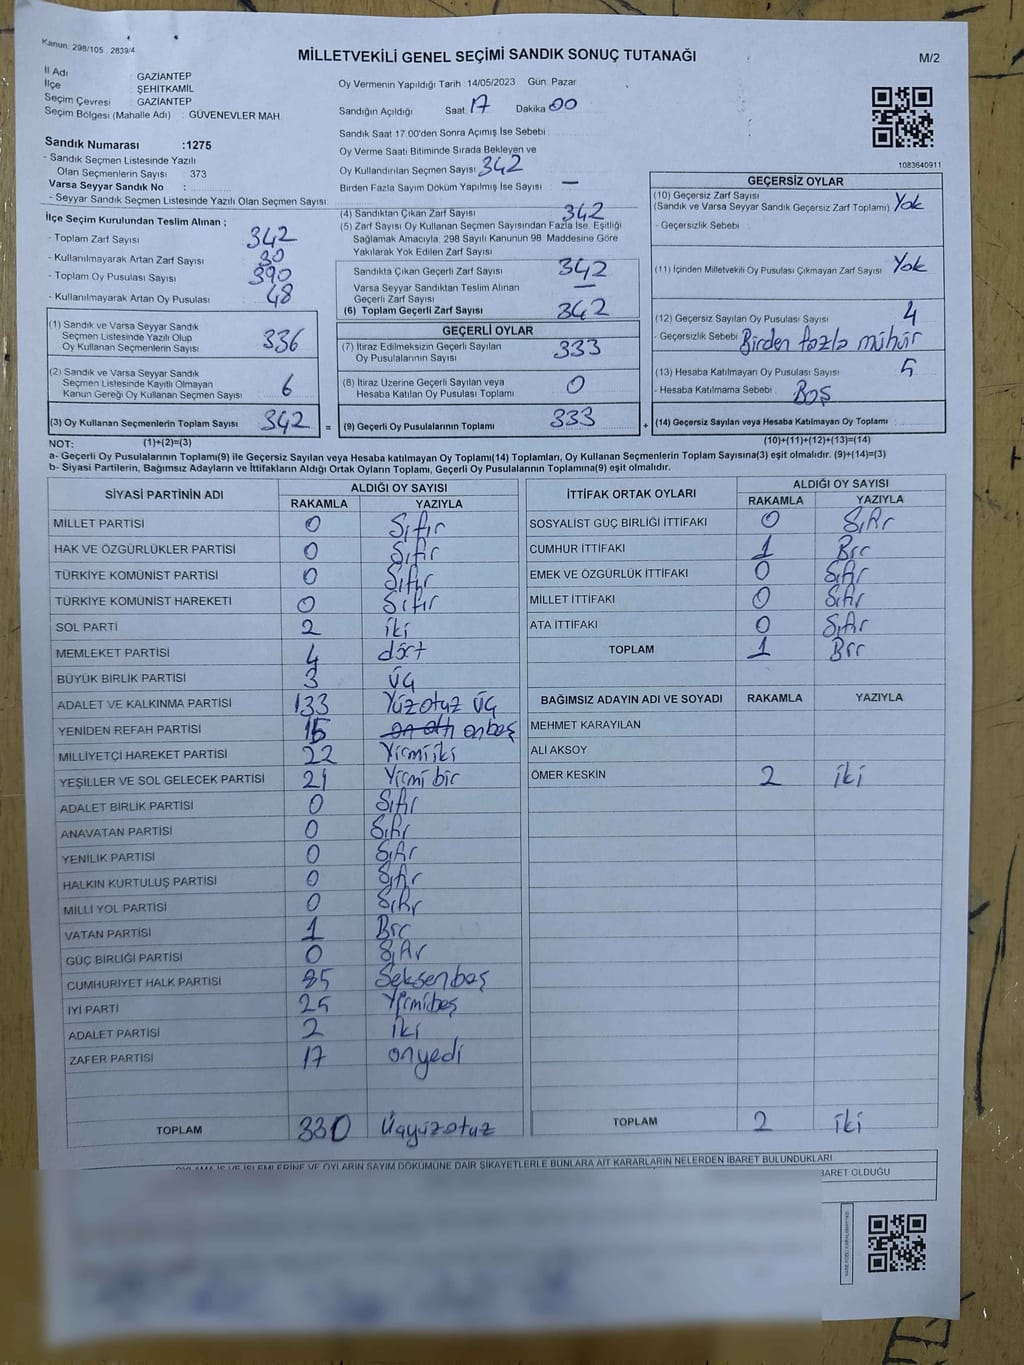 Kanun: 298/105 , 2839/4
MİLLETVEKİLİ GENEL SEÇİMİ SANDIK SONUÇ TUTANAĞI
M/2
İl Adı : GAZİANTEP
İlçe : ŞEHİTKAMİL
Seçim Çevresi : GAZİANTEP
Seçim Bölgesi (Mahalle Adı) : GÜVENEVLER MAH.
Oy Vermenin Yapıldığı Tarih :14/05/2023 Gün: Pazar
Sandığın Açıldığı Saat: 17 Dakika: 00
Sandık Saat 17.00'den Sonra Açımış İse Sebebi :
Oy Verme Saati Bitiminde Sırada Bekleyen ve
Oy Kullandırılan Seçmen Sayısı : 342
Birden Fazla Sayım Döküm Yapılmış İse Sayısı : —
1083640911
Sandık Numarası :1275
- Sandık Seçmen Listesinde Yazılı
Olan Seçmenlerin Sayısı : 373
Varsa Seyyar Sandık No :
- Seyyar Sandık Seçmen Listesinde Yazılı Olan Seçmen Sayısı:
İlçe Seçim Kurulundan Teslim Alınan ;
- Toplam Zarf Sayısı 342
- Kullanılmayarak Artan Zarf Sayısı 30
- Toplam Oy Pusulası Sayısı 390
- Kullanılmayarak Artan Oy Pusulası 48
(1) Sandık ve Varsa Seyyar Sandık
Seçmen Listesinde Yazılı Olup
Oy Kullanan Seçmenlerin Sayısı 336
(2) Sandık ve Varsa Seyyar Sandık
Seçmen Listesinde Kayıtlı Olmayan
Kanun Gereği Oy Kullanan Seçmen Sayısı 6
(3) Oy Kullanan Seçmenlerin Toplam Sayısı 342 =
(4) Sandıktan Çıkan Zarf Sayısı 342
(5) Zarf Sayısı Oy Kullanan Seçmen Sayısından Fazla İse, Eşitliği
Sağlamak Amacıyla, 298 Sayılı Kanunun 98. Maddesine Göre
Yakılarak Yok Edilen Zarf Sayısı
Sandıkta Çıkan Geçerli Zarf Sayısı 342
Varsa Seyyar Sandıktan Teslim Alınan
Geçerli Zarf Sayısı —
(6) Toplam Geçerli Zarf Sayısı 342
GEÇERLİ OYLAR
(7) İtiraz Edilmeksizin Geçerli Sayılan
Oy Pusulalarının Sayısı 333
(8) İtiraz Üzerine Geçerli Sayılan veya
Hesaba Katılan Oy Pusulası Toplamı 0
(9) Geçerli Oy Pusulalarının Toplamı 333 +
GEÇERSİZ OYLAR
(10) Geçersiz Zarf Sayısı
(Sandık ve Varsa Seyyar Sandık Geçersiz Zarf Toplamı) Yok
- Geçersizlik Sebebi :
(11) İçinden Milletvekili Oy Pusulası Çıkmayan Zarf Sayısı Yok
(12) Geçersiz Sayılan Oy Pusulası Sayısı 4
- Geçersizlik Sebebi Birden fazla mühür
(13) Hesaba Katılmayan Oy Pusulası Sayısı 5
- Hesaba Katılmama Sebebi : Boş
(14) Geçersiz Sayılan veya Hesaba Katılmayan Oy Toplamı :
NOT: (1)+(2)=(3)
(10)+(11)+(12)+(13)=(14)
a- Geçerli Oy Pusulasının Toplamı(9) ile Geçersiz Sayılan veya Hesaba katılmayan Oy Toplamı(14) Toplamları, Oy Kullanan Seçmenlerin Toplam Sayısına(3) eşit olmalıdır. (9)+(14)=(3)
b- Siyasi Partilerin, Bağımsız Adayların ve İttifakların Aldığı Ortak Oyların Toplamı, Geçerli Oy Pusulalarının Toplamına(9) eşit olmalıdır.
SİYASİ PARTİNİN ADI ALDIĞI OY SAYISI
RAKAMLA YAZIYLA
MİLLET PARTİSİ 0 Sıfır
HAK VE ÖZGÜRLÜKLER PARTİSİ 0 Sıfır
TÜRKİYE KOMÜNİST PARTİSİ 0 Sıfır
TÜRKİYE KOMÜNİST HAREKETİ 0 Sıfır
SOL PARTİ 2 iki
MEMLEKET PARTİSİ 4 dört
BÜYÜK BİRLİK PARTİSİ 3 üç
ADALET VE KALKINMA PARTİSİ 133 Yüzotuz üç
YENİDEN REFAH PARTİSİ 15 on altı onbeş
MİLLİYETÇİ HAREKET PARTİSİ 22 Yirmiiki
YEŞİLLER VE SOL GELECEK PARTİSİ 21 Yirmi bir
ADALET BİRLİK PARTİSİ 0 Sıfır
ANAVATAN PARTİSİ 0 Sıfır
YENİLİK PARTİSİ 0 Sıfır
HALKIN KURTULUŞ PARTİSİ 0 Sıfır
MİLLİ YOL PARTİSİ 0 Sıfır
VATAN PARTİSİ 1 Bir
GÜÇ BİRLİĞİ PARTİSİ 0 Sıfır
CUMHURİYET HALK PARTİSİ 85 Seksenbeş
İYİ PARTİ 25 Yirmibeş
ADALET PARTİSİ 2 iki
ZAFER PARTİSİ 17 onyedi
TOPLAM 330 Üçyüzotuz
İTTİFAK ORTAK OYLARI ALDIĞI OY SAYISI
RAKAMLA YAZIYLA
SOSYALİST GÜÇ BİRLİĞİ İTTİFAKI 0 Sıfır
CUMHUR İTTİFAKI 1 Bir
EMEK VE ÖZGÜRLÜK İTTİFAKI 0 Sıfır
MİLLET İTTİFAKI 0 Sıfır
ATA İTTİFAKI 0 Sıfır
TOPLAM 1 Bir
BAĞIMSIZ ADAYIN ADI VE SOYADI RAKAMLA YAZIYLA
MEHMET KARAYILAN
ALİ AKSOY
ÖMER KESKİN 2 iki
TOPLAM 2 iki
OYLAMA İŞ VE İŞLEMLERİNE VE OYLARIN SAYIM DÖKÜMÜNE DAİR ŞİKAYETLERLE BUNLARA AİT KARARLARIN NELERDEN İBARET BULUNDUKLARI
BARET OLDUĞU